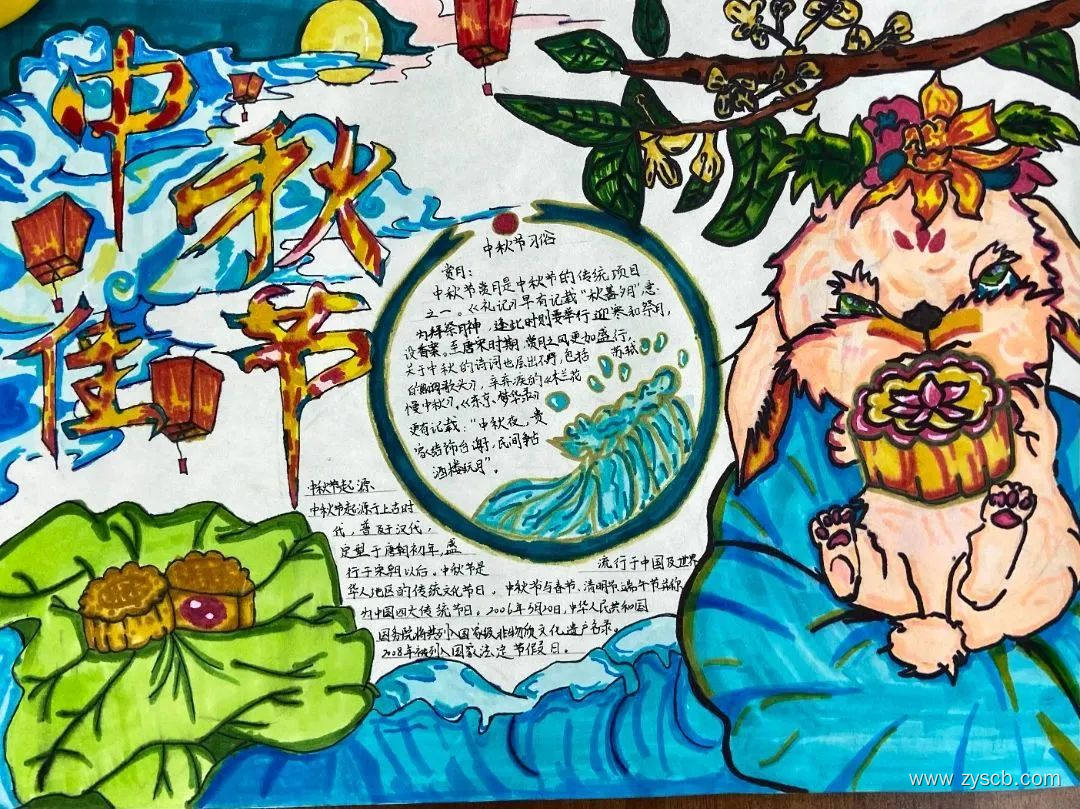 中秋
佳节
中秋节习俗
赏月：
中秋节赏月是中秋节的传统项目
之一。《礼记》早有记载"秋暮夕月"意
为拜祭月神，逢此时则要举行迎寒和祭月，
设香案。至唐宋时期，赏月之风更加盛行，
关于中秋的诗词也层出不穷，包括 苏轼
的《水调歌头》，辛弃疾的《木兰花
慢中秋》。《东京梦华录》
更有记载："中秋夜，贵
家结饰台榭，民间争占
酒楼玩月"。
中秋节起源
中秋节起源于上古时
代，普及于汉代，
定型于唐朝初年，盛
行于宋朝以后。中秋节是 流行于中国及世界
华人地区的传统文化节日，中秋节与春节、清明节、端午节并称
为中国四大传统节日。2006年5月20日，中华人民共和国
国务院将其列入国家级非物质文化遗产名录。
2008年被列入国家法定节假日。
www.zyscb.com